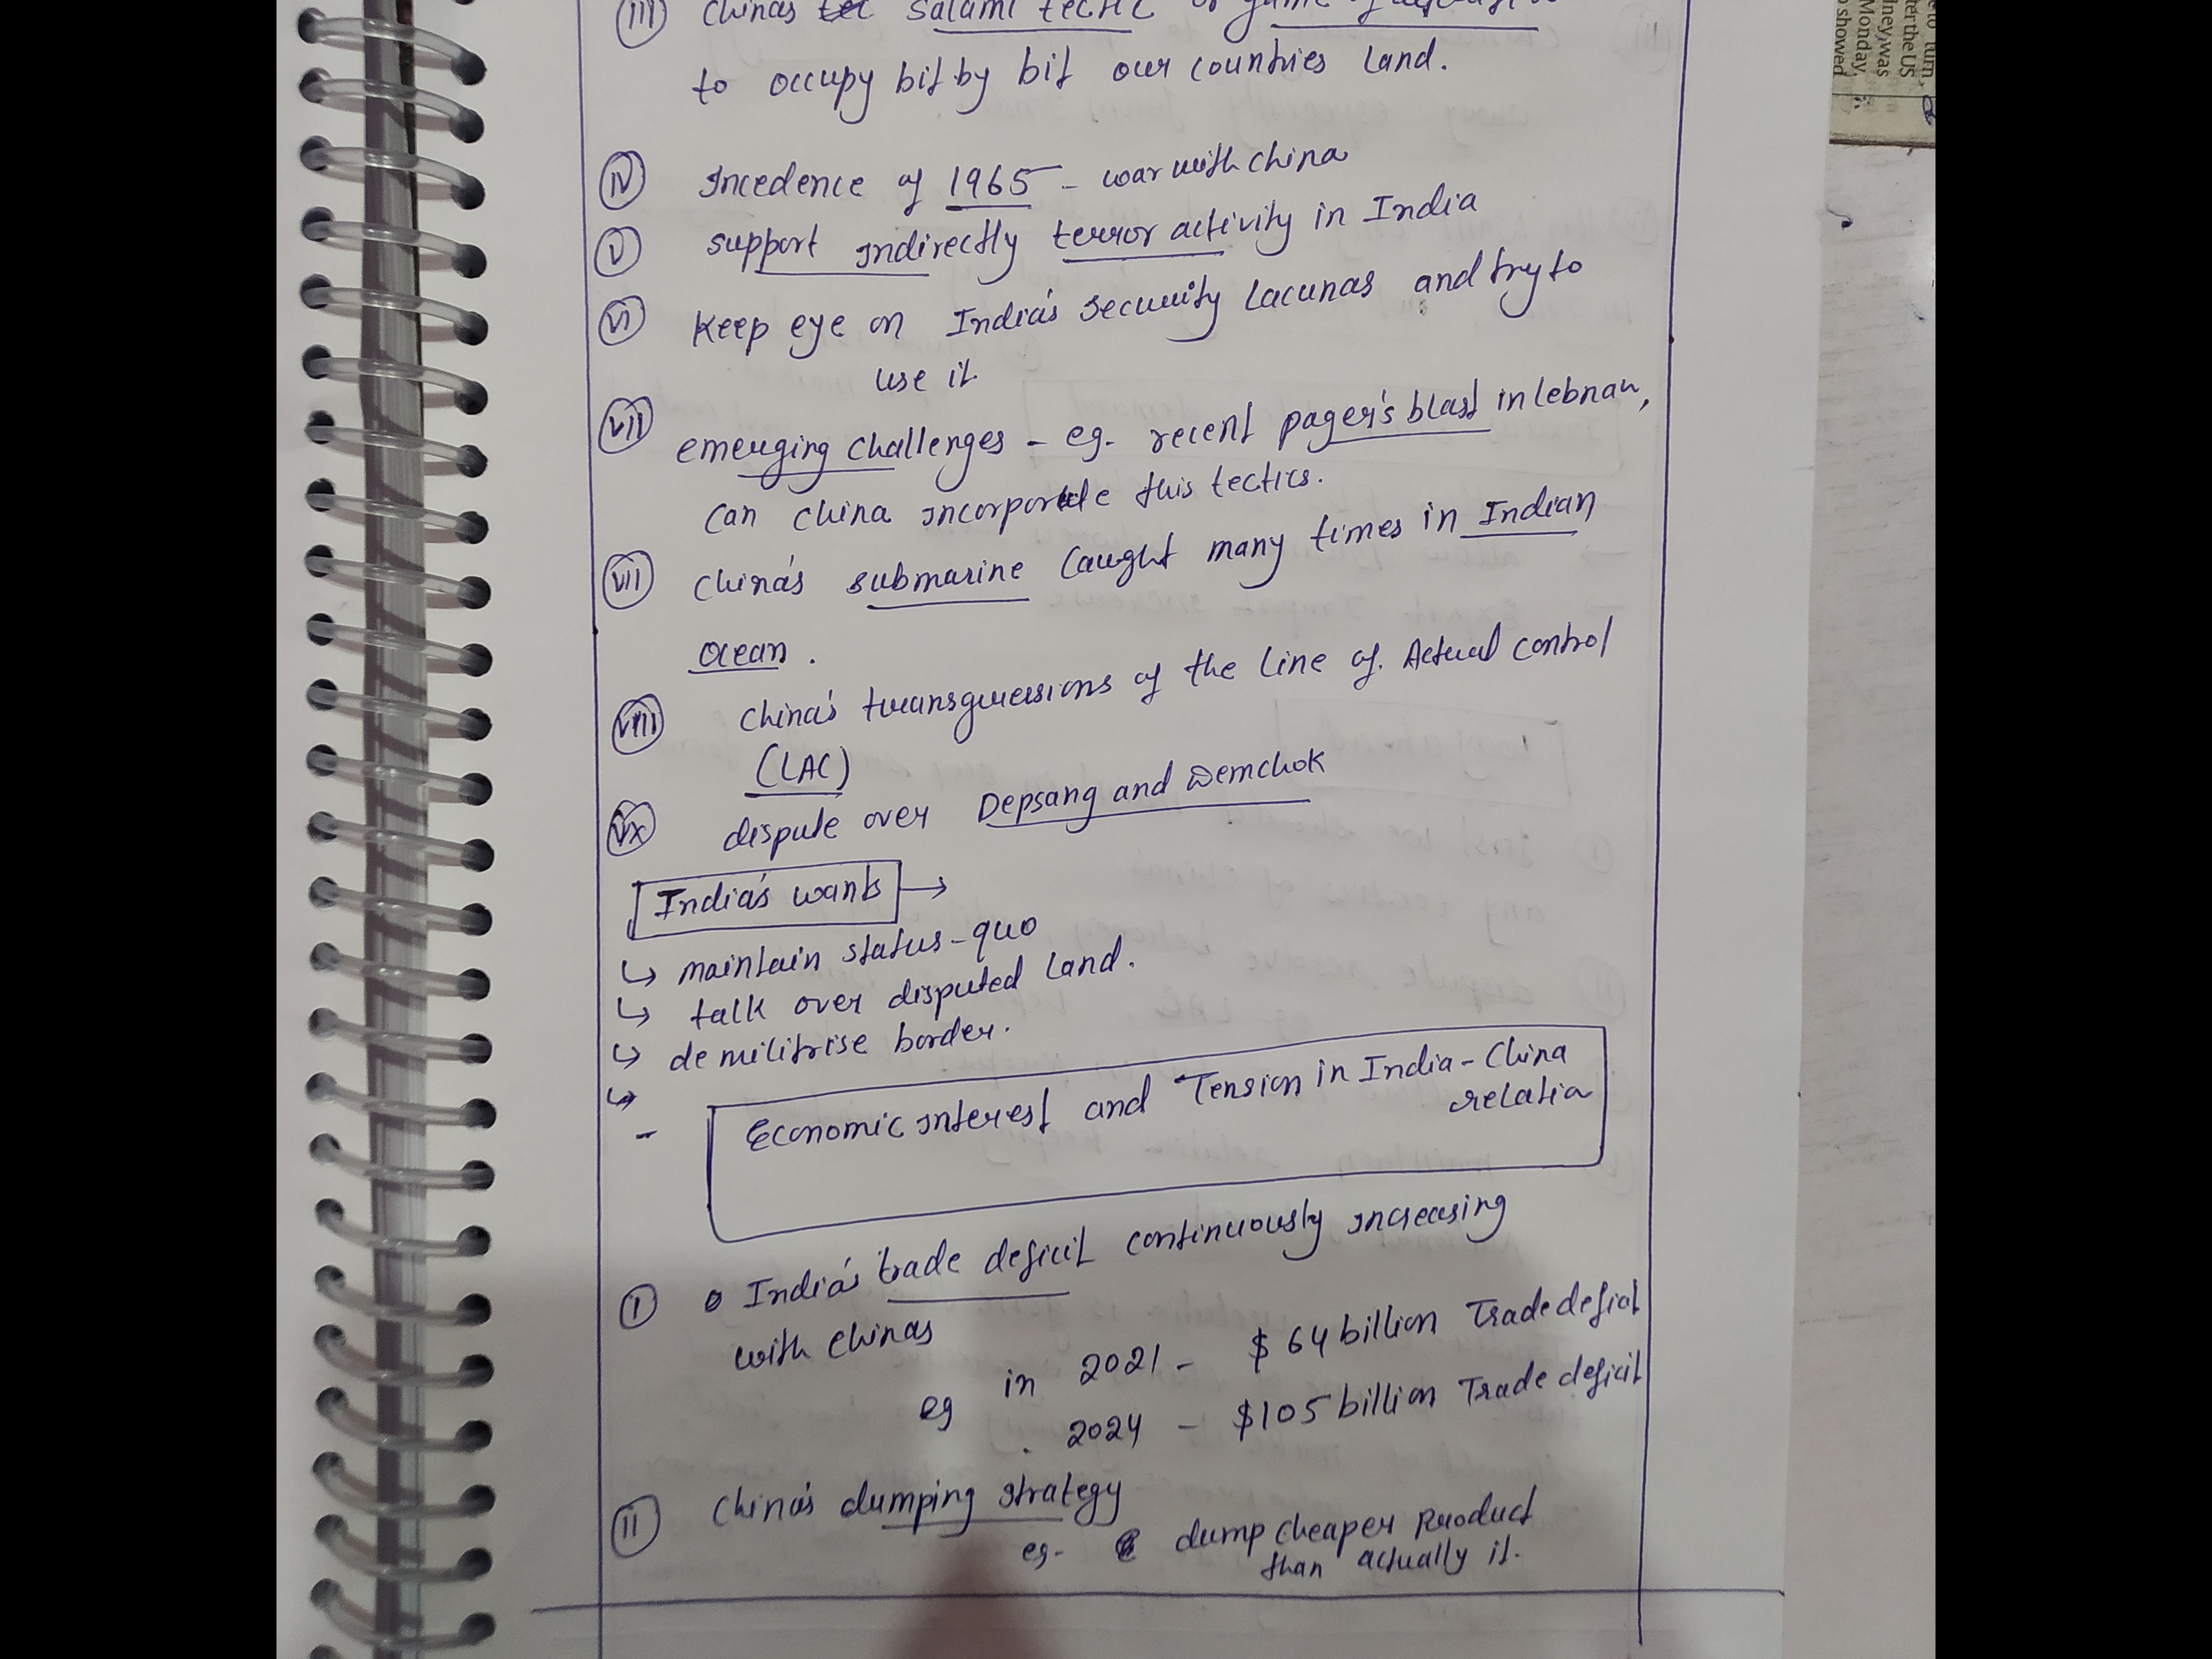 (III) Chinas Salami tectic or game of
to occupy bit by bit our countries land.
(IV) Incedence of 1965 - war with china
(V) support indirectly terror activity in India
(VI) Keep eye on India's security lacunas and try to
use it
(VII) emerging challenges - eg. recent pager's blast in lebnan,
can china incorporate this tectics.
(VII) China's submarine caught many times in Indian
ocean.
(VIII) China's transgressions of the Line of. Actual control
(LAC)
(VX) dispute over Depsang and Demchok
India's wants →
↳ maintain status-quo
↳ talk over disputed land.
↳ demilitrise border.
↳
- Economic interest and Tension in India-China
relation
(I) India's trade deficit continuously increasing
with Chinas
eg in 2021 - $ 64 billion Trade deficit
2024 - $105 billion Trade deficit
(II) China's dumping strategy
eg- dump cheaper product
than actually it.
to turn,
der the US
dney, was
Monday,
showed